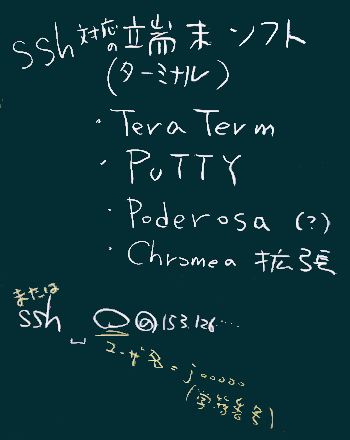 ssh 対応の 端末ソフト
(ターミナル)
・Tera Term
・PuTTY
・Poderosa (?)
・Chromea 拡張
または
ssh ␣ ○@153.126....
ユーザ名 = j00000
(学籍番号)